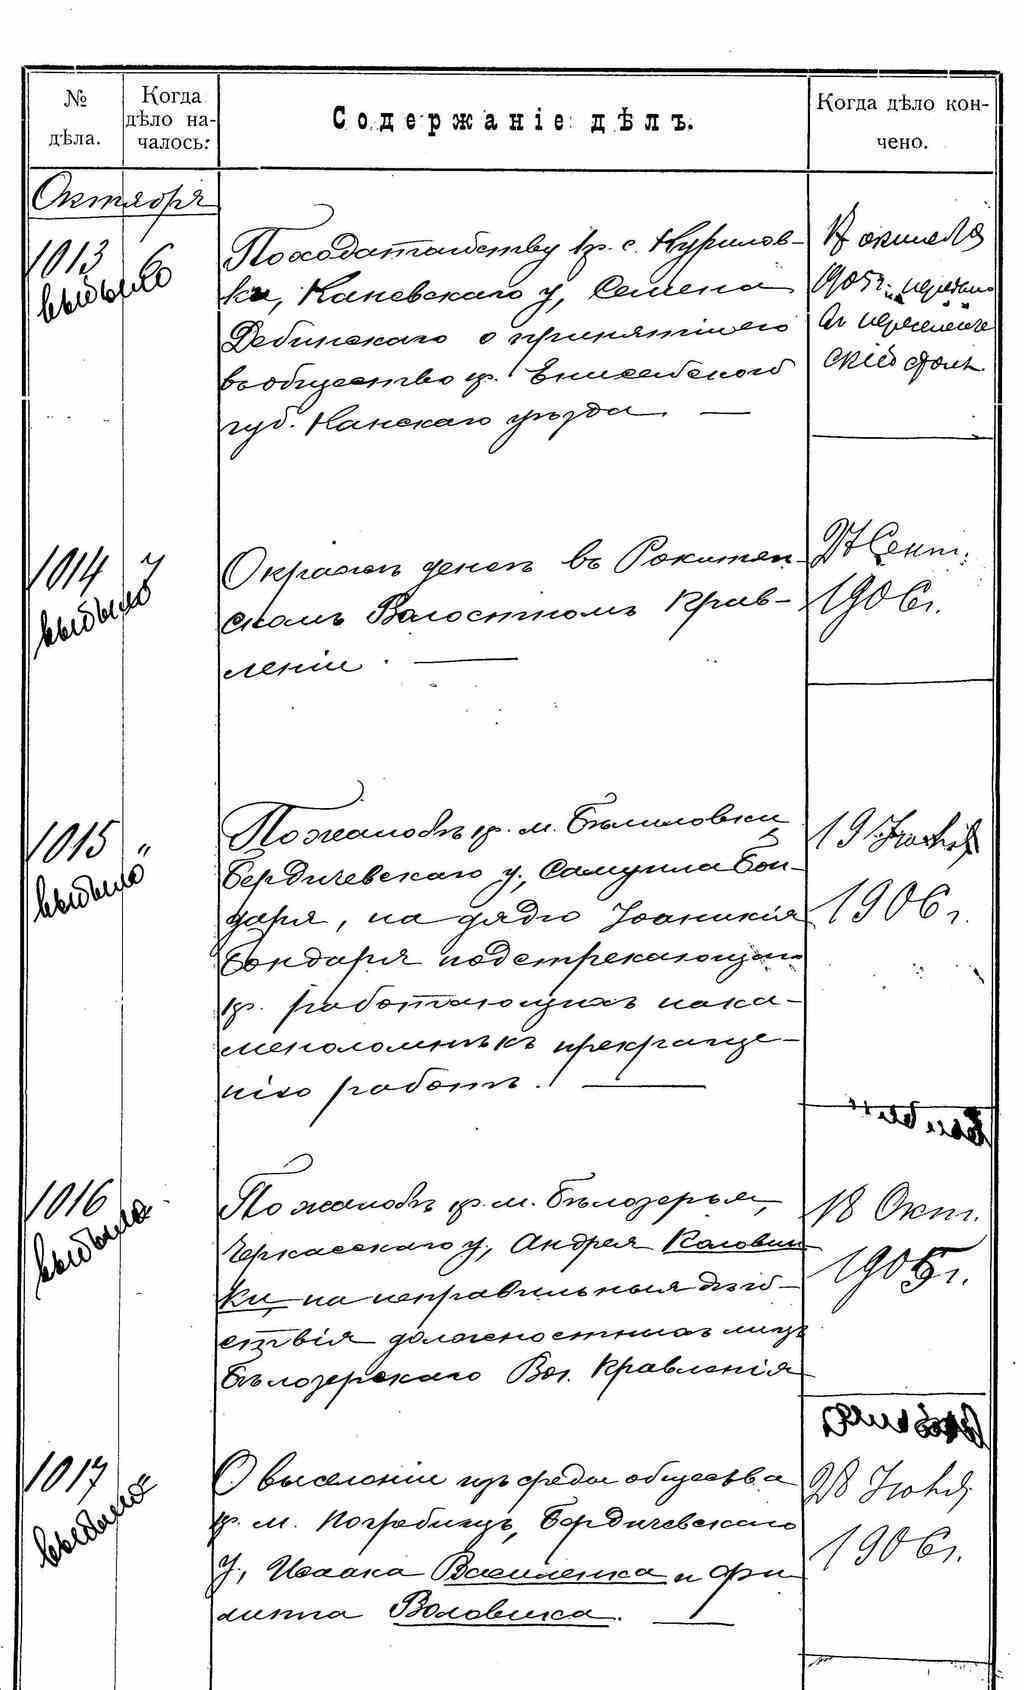 № дѣла.
Когда дѣло на-
чалось:
Содержаніе дѣлъ.
Когда дѣло кон-
чено.
Октября
1013 6
выбыло
По ходатайству кр. с. Курилов-
ки, Каневскаго у., Семена
Дебинскаго о принятіи его
въ общество кр. Енисейской
губ. Канскаго уѣзда. —
1905 г.
1014 7
выбыло
О кражѣ денегъ въ Рокитян-
скомъ Волостномъ Прав-
леніи. —
27 Сент.
1906 г.
1015 "
выбыло
По жалобѣ кр. м. Бѣлиловки,
Бердичевскаго у., Самуила Бон-
даря, на дядю Іоаникія
Бондаря подстрекающаго
кр. работающихъ на ка-
меноломнѣ къ прекраще-
нію работъ. —
19 Іюня
1906 г.
1016 "
выбыло
По жалобѣ кр. м. Бѣлозерья,
Черкасскаго у., Андрея Коловин
ки, на неправильныя дѣй-
ствія должностныхъ лицъ
Бѣлозерскаго Вол. Правленія
18 Окт.
1905 г.
1017 "
выбыло
О выселеніи изъ среды общества
кр. м. Погребищъ, Бердичевскаго
у., Исаака Василенка и Фи
липпа Воловика. —
28 Іюня
1906 г.